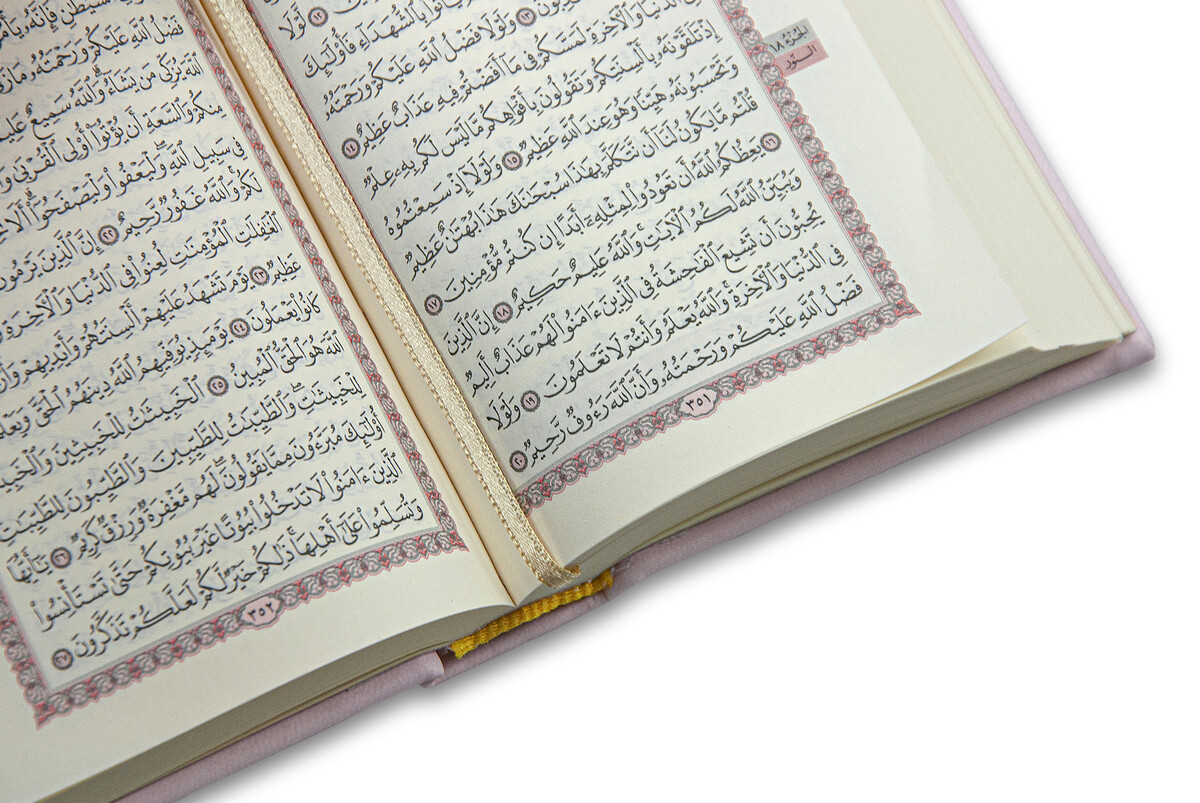 ١٢ لَّوْلَا
بِٱلشُّهَدَآءِ فَأُو۟لَٰٓئِكَ
١٣ وَلَوْلَا فَضْلُ ٱللَّهِ عَلَيْكُمْ وَرَحْمَتُهُۥ
ٱلدُّنْيَا وَٱلْءَاخِرَةِ لَمَسَّكُمْ فِى مَآ أَفَضْتُمْ فِيهِ عَذَابٌ عَظِيمٌ ١٤
إِذْ تَلَقَّوْنَهُۥ بِأَلْسِنَتِكُمْ وَتَقُولُونَ بِأَفْوَاهِكُم مَّا لَيْسَ لَكُم بِهِۦ عِلْمٌ
وَتَحْسَبُونَهُۥ هَيِّنًا وَهُوَ عِندَ ٱللَّهِ عَظِيمٌ ١٥ وَلَوْلَآ إِذْ سَمِعْتُمُوهُ
قُلْتُم مَّا يَكُونُ لَنَآ أَن نَّتَكَلَّمَ بِهَٰذَا سُبْحَٰنَكَ هَٰذَا بُهْتَٰنٌ عَظِيمٌ
١٦ يَعِظُكُمُ ٱللَّهُ أَن تَعُودُوا۟ لِمِثْلِهِۦٓ أَبَدًا إِن كُنتُم مُّؤْمِنِينَ ١٧
وَيُبَيِّنُ ٱللَّهُ لَكُمُ ٱلْءَايَٰتِ وَٱللَّهُ عَلِيمٌ حَكِيمٌ ١٨ إِنَّ ٱلَّذِينَ
يُحِبُّونَ أَن تَشِيعَ ٱلْفَٰحِشَةُ فِى ٱلَّذِينَ ءَامَنُوا۟ لَهُمْ عَذَابٌ أَلِيمٌ
فِى ٱلدُّنْيَا وَٱلْءَاخِرَةِ وَٱللَّهُ يَعْلَمُ وَأَنتُمْ لَا تَعْلَمُونَ ١٩ وَلَوْلَا
فَضْلُ ٱللَّهِ عَلَيْكُمْ وَرَحْمَتُهُۥ وَأَنَّ ٱللَّهَ رَءُوفٌ رَّحِيمٌ ٢٠
٣٥١
الجُزءُ ١٨
النُّور
فَإِنَّهُۥ
فَضْلُ ٱللَّهِ عَلَيْكُمْ وَرَحْمَتُهُۥ مَا
ٱللَّهَ يُزَكِّى مَن يَشَآءُ وَٱللَّهُ سَمِيعٌ
مِنكُمْ وَٱلسَّعَةِ أَن يُؤْتُوٓا۟ أُو۟لِى ٱلْقُرْبَىٰ
فِى سَبِيلِ ٱللَّهِ وَلْيَعْفُوا۟ وَلْيَصْفَحُوٓا۟ أَلَا
لَكُمْ وَٱللَّهُ غَفُورٌ رَّحِيمٌ ٢٢ إِنَّ ٱلَّذِينَ يَرْمُونَ
ٱلْغَٰفِلَٰتِ ٱلْمُؤْمِنَٰتِ لُعِنُوا۟ فِى ٱلدُّنْيَا وَٱلْءَاخِرَةِ
عَظِيمٌ ٢٣ يَوْمَ تَشْهَدُ عَلَيْهِمْ أَلْسِنَتُهُمْ وَأَيْدِيهِمْ
كَانُوا۟ يَعْمَلُونَ ٢٤ يَوْمَئِذٍ يُوَفِّيهِمُ ٱللَّهُ دِينَهُمُ ٱلْحَقَّ
ٱللَّهَ هُوَ ٱلْحَقُّ ٱلْمُبِينُ ٢٥ ٱلْخَبِيثَٰتُ لِلْخَبِيثِينَ
لِلْخَبِيثَٰتِ وَٱلطَّيِّبَٰتُ لِلطَّيِّبِينَ وَٱلطَّيِّبُونَ لِلطَّيِّبَٰتِ
أُو۟لَٰٓئِكَ مُبَرَّءُونَ مِمَّا يَقُولُونَ لَهُم مَّغْفِرَةٌ وَرِزْقٌ كَرِيمٌ ٢٦ يَٰٓأَيُّهَا
ٱلَّذِينَ ءَامَنُوا۟ لَا تَدْخُلُوا۟ بُيُوتًا غَيْرَ بُيُوتِكُمْ حَتَّىٰ تَسْتَأْنِسُوا۟
وَتُسَلِّمُوا۟ عَلَىٰٓ أَهْلِهَا ذَٰلِكُمْ خَيْرٌ لَّكُمْ لَعَلَّكُمْ تَذَكَّرُونَ ٢٧
٣٥٢